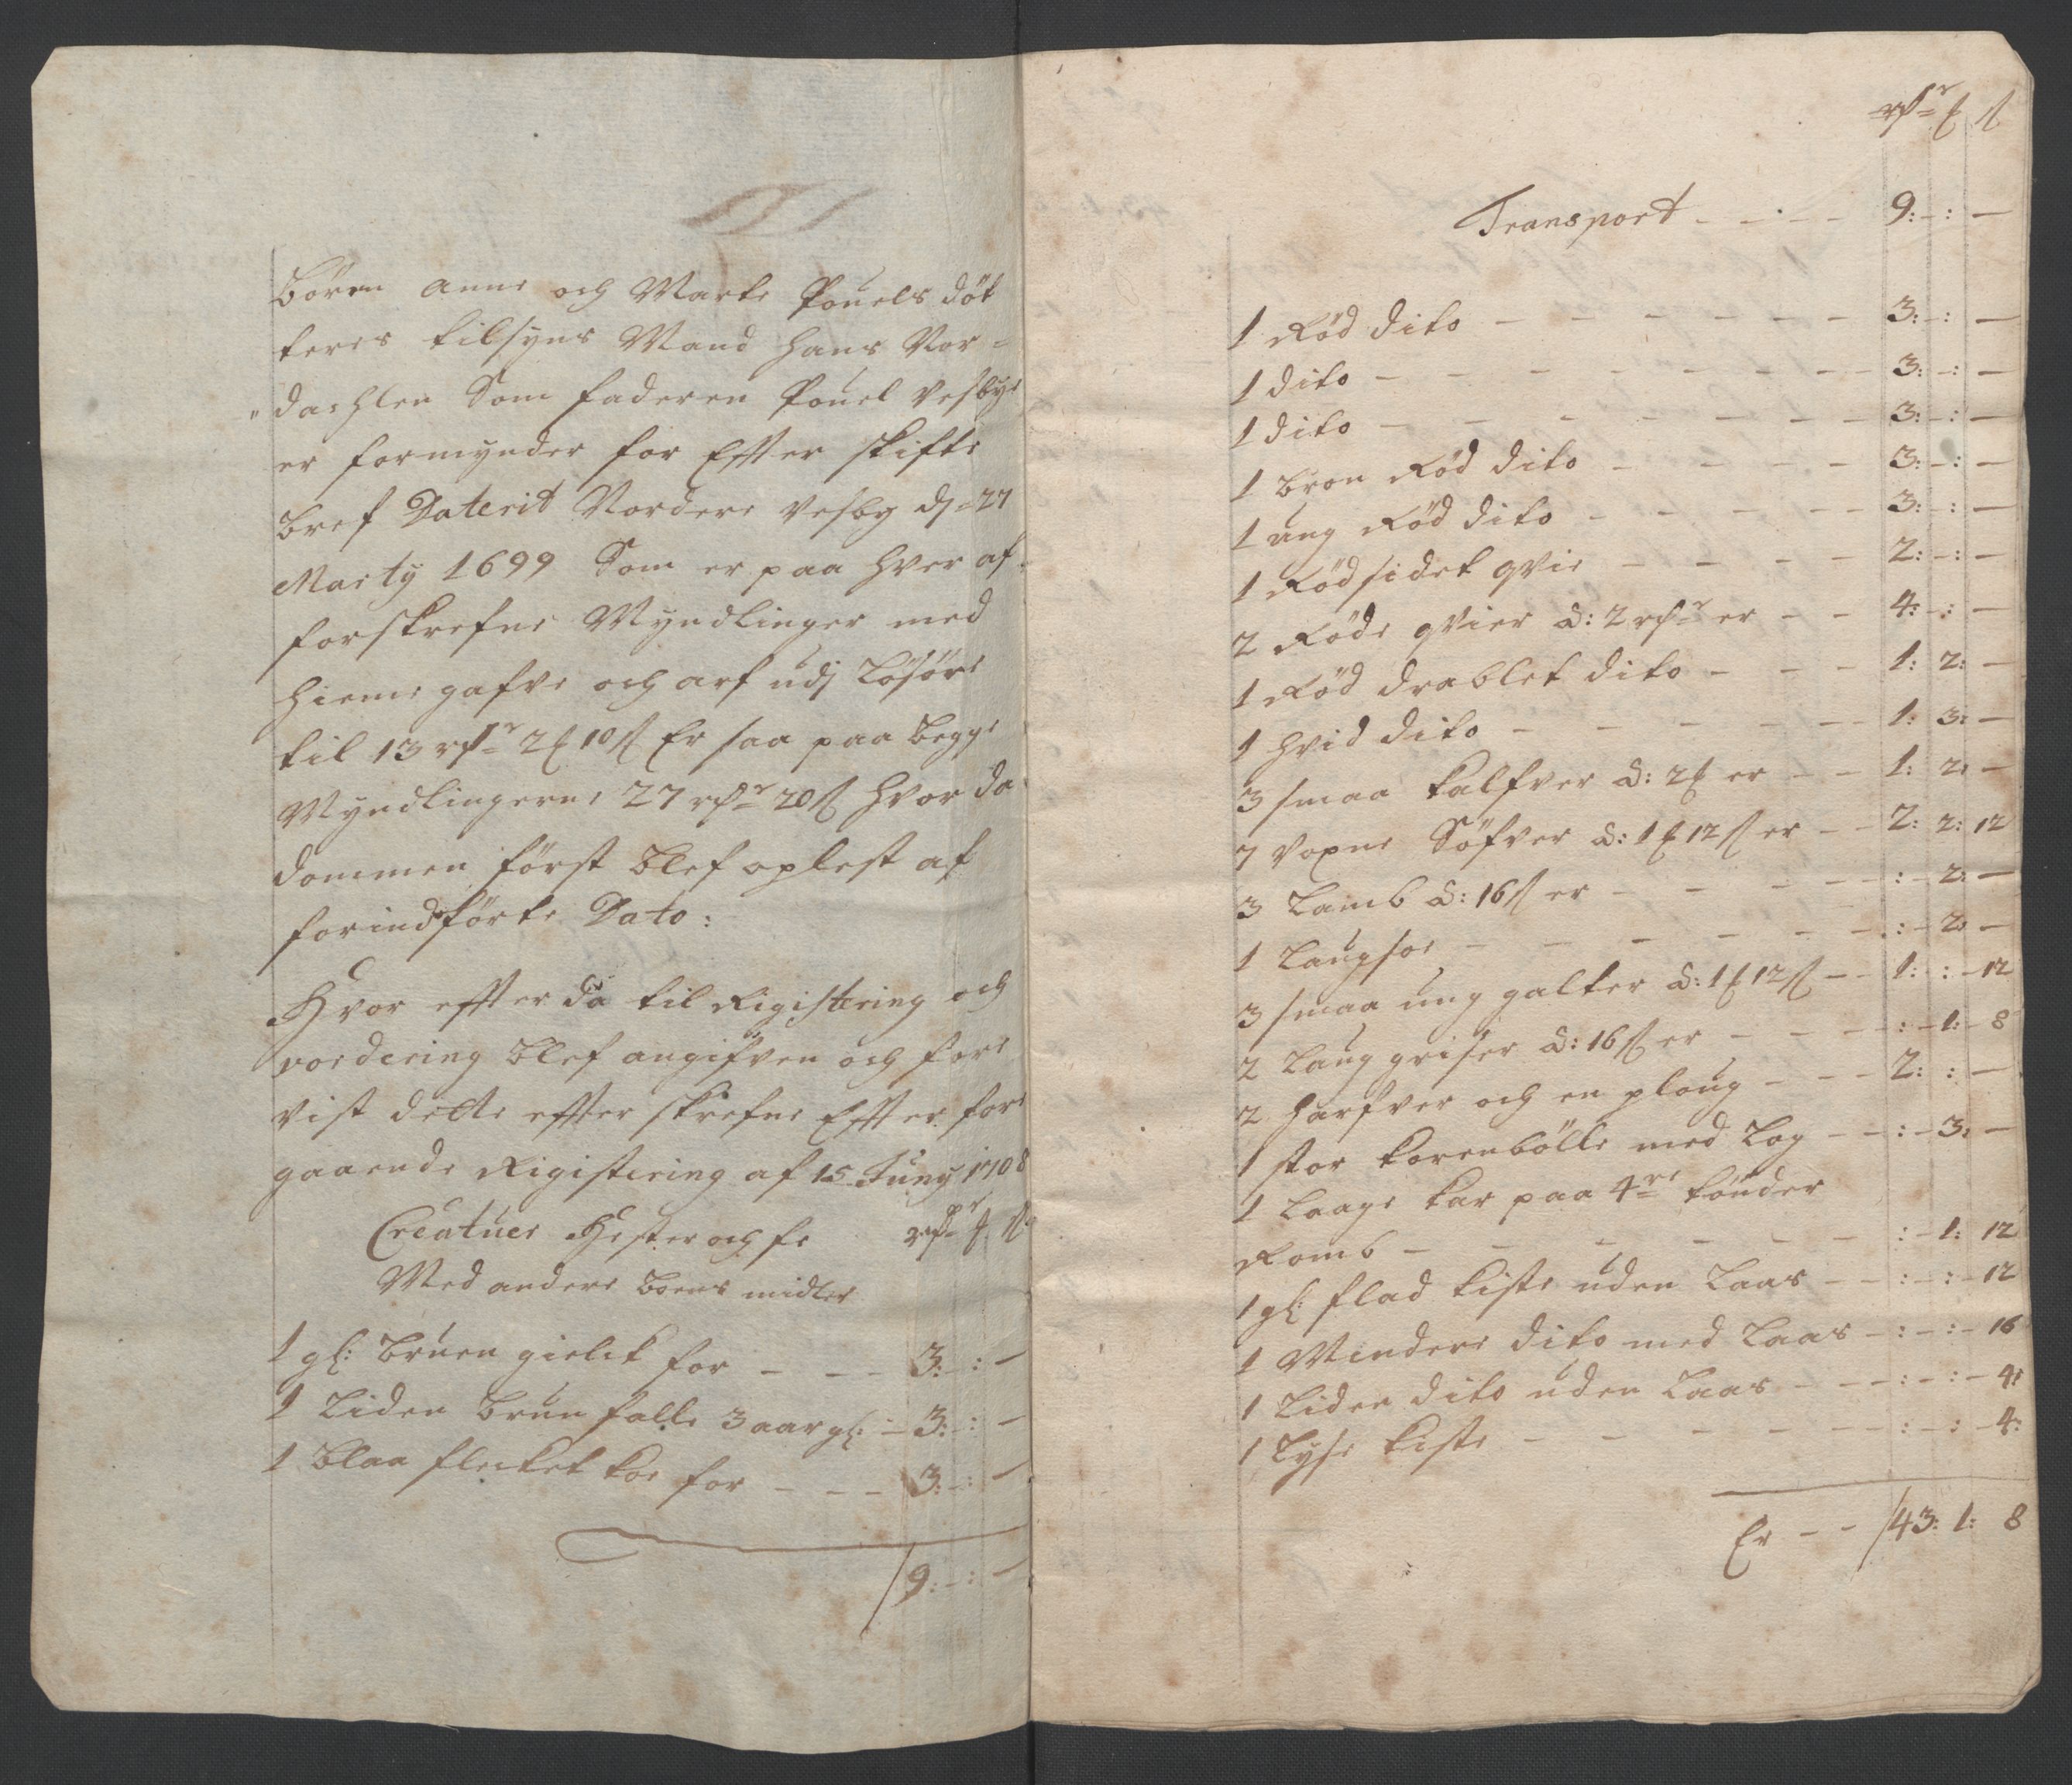 Börn Anne och Marte Pouels döt
teres tilsyns Mand Hans Nor=
dachlen Som faderen Pouel Vesbye
er formynder for Effter skifte
bref Daterit Nordere Vesby dj=27
Marty 1699 Som er paa hver af
forskrefne Myndlinger med
hieme gafve och arf udj Lösöre
til 13 rdr 2 ʒ 10 ß Er saa paa begge
Myndlingerne 27 rdr 20 ß hvor da
dommen först blef oplest af
forindförte Dato:
Hvor effter da til Rigistering och
vordering blef angifven och fore
vist dette effter skrefne Effter fore
gaaende Rigistering af 15 Juny 1708
Creatuer Hester och fe rdr ʒ ß
Med andere boens midler
1 gl: bruen gielck for - - - 3: - : -
1 Liden brun falle 3 aar gl: - 3: - : -
1 blaa flecket koe for - - - 3: - : -
9: - : -
rdr ʒ ß
Transport - - - - 9: - : -
1 Röd dito - - - - - - - 3: - : -
1 dito - - - - - - - - 3: - : -
1 dito - - - - - - - 3: - : -
1 bron Röd dito - - - - - 3: - : -
1 ung Röd dito - - - - - 3: - : -
1 Rödsidet qvie - - - - 2: - : -
2 Röde qvier à: 2 rdr er - - 4: - : -
1 Röd drablet dito - - - 1: 2: -
1 hvid dito - - - - - 1: 3: -
3 smaa kalfver à: 2 ʒ er - - 1: 2: -
7 voxne Söfver à: 1 ʒ 12 ß er - - 2: 2: 12
3 Lamb à: 16 ß er - - - - - : - 2: -
1 Laugsoe - - - - - - : - 2: -
3 smaa ung galter à: 1 ʒ 12 ß - - 1: : - 12
2 Laug griser à: 16 ß er - - - - : - 1: - 8
2 harfver och en ploug - - - 2: : -
1 stor korenbölle med Log - - : - 3: -
1 Laage kar paa 4re tönder
Romb - - - - - - : - 1: 12
1 gl: flad kiste uden Laas - - : - : - 12
1 Mindere dito med Laas - : - : - 16
1 Liden dito uden Laas - - - : - : - 4:
1 Lyse kiste - - - - - - - : - : - 4:
Er - - 43: 1: 8